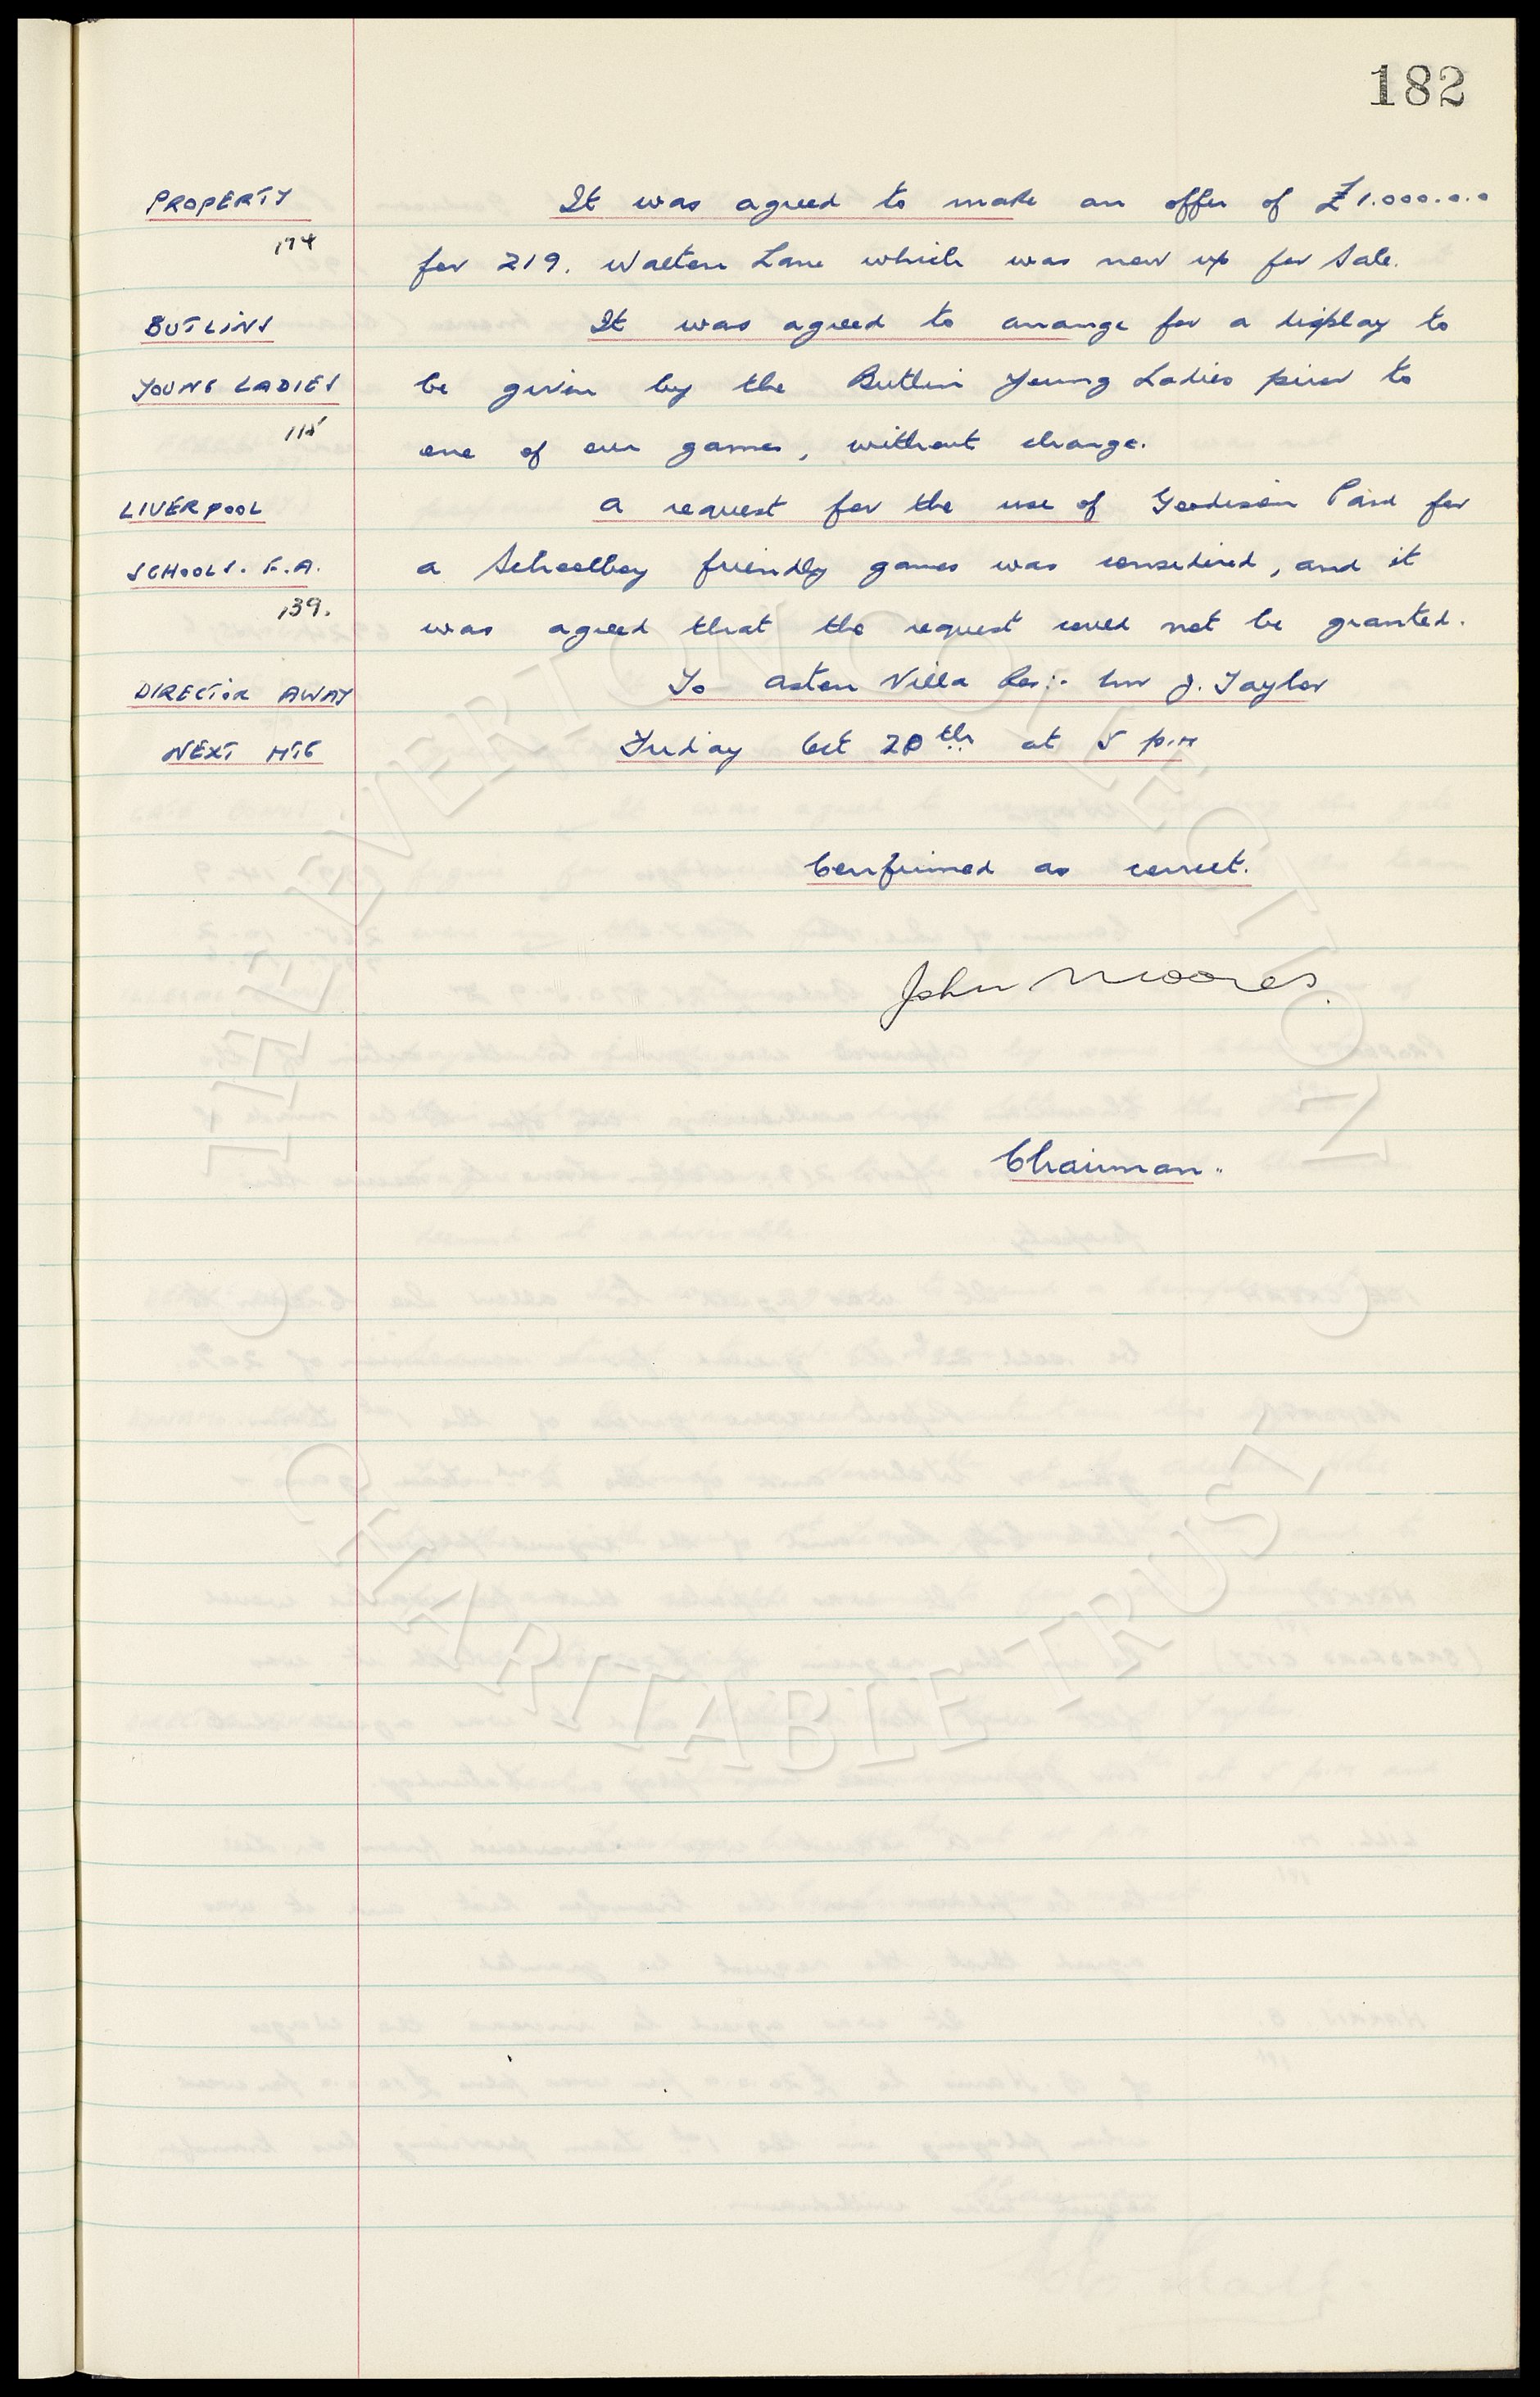 182
PROPERTY It was agreed to make an offer of £1.000.0.0
174 for 219. Walton Lane which was now up for Sale.
BUTLINS It was agreed to arrange for a display to
YOUNG LADIES be given by the Butlin Young Ladies prior to
115 one of our games, without charge.
LIVERPOOL A request for the use of Goodison Park for
SCHOOLS. F.A. a Schoolboy friendly games was considered, and it
139. was agreed that the request could not be granted.
DIRECTOR AWAY To Aston Villa Res:- Mr J. Taylor
NEXT MTG Friday Oct 20th at 5 p.m
Confirmed as correct.
John Moores.
Chairman.
THE EVERTON COLLECTION
CHARITABLE TRUST